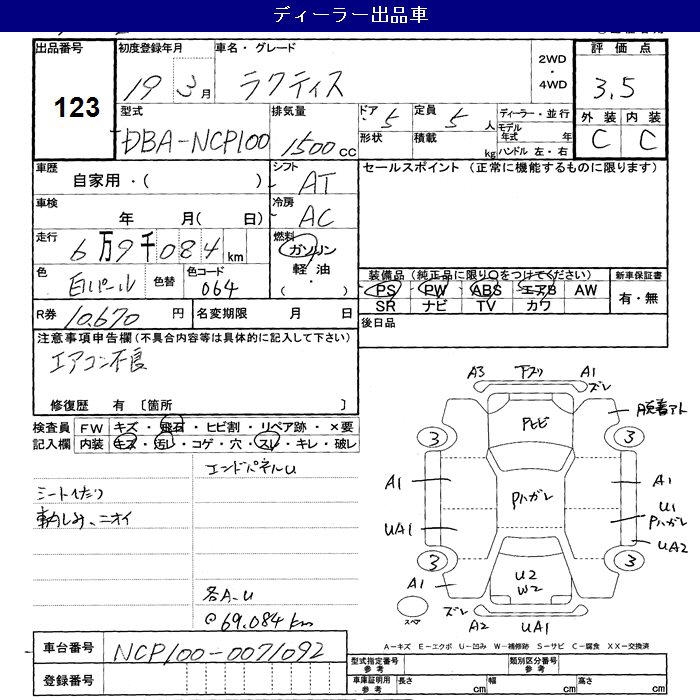 ディーラー出品車
出品番号 初度登録年月 車名・グレード 評価点
123
19 3月 ラクティス 2WD・4WD 3.5
型式 排気量 ドア 5 定員 5人 ディーラー・並行 外装 内装
DBA-NCP100 1500cc 形状 積載 kg モデル年式 年 C C
ハンドル 左・右
車歴 シフト セールスポイント(正常に機能するものに限ります)
自家用・( ) AT
車検 冷房
年 月( 日) AC
走行 燃料
6万9千084km ガソリン
軽油
( ・ )
色 色替 色コード 装備品(純正品に限り○をつけてください) 新車保証書
白パール 064 PS PW ABS エアB AW 有・無
SR ナビ TV カワ
R券 10,670円 名変期限 月 日 後日品
注意事項申告欄(不具合内容等は具体的に記入して下さい)
エアコン不良
修復歴 有 [箇所 ]
検査員 FW キズ・飛石・ヒビ割・リペア跡・×要
記入欄 内装 キズ・汚レ・コゲ・穴・スレ・キレ・破レ
エンドパネルU
シートヘたり
車内しみ、ニオイ
各A.U
@69.084km
A3 下スリ A1
ズレ
Pヒビ 脱着アト
3 3
A1 Pハガレ A1
UA1 U1
Pハガレ
UA2
3 3
A1 U2
W2
スペア ズレ
A2 UA1
A-キズ E-エクボ U-凹み W-補修跡 S-サビ C-腐食 XX-交換済
車台番号 NCP100-0071092
型式指定番号 参考 類別区分番号 参考
登録番号
車庫証明用 参考 長さ cm 幅 cm 高さ cm